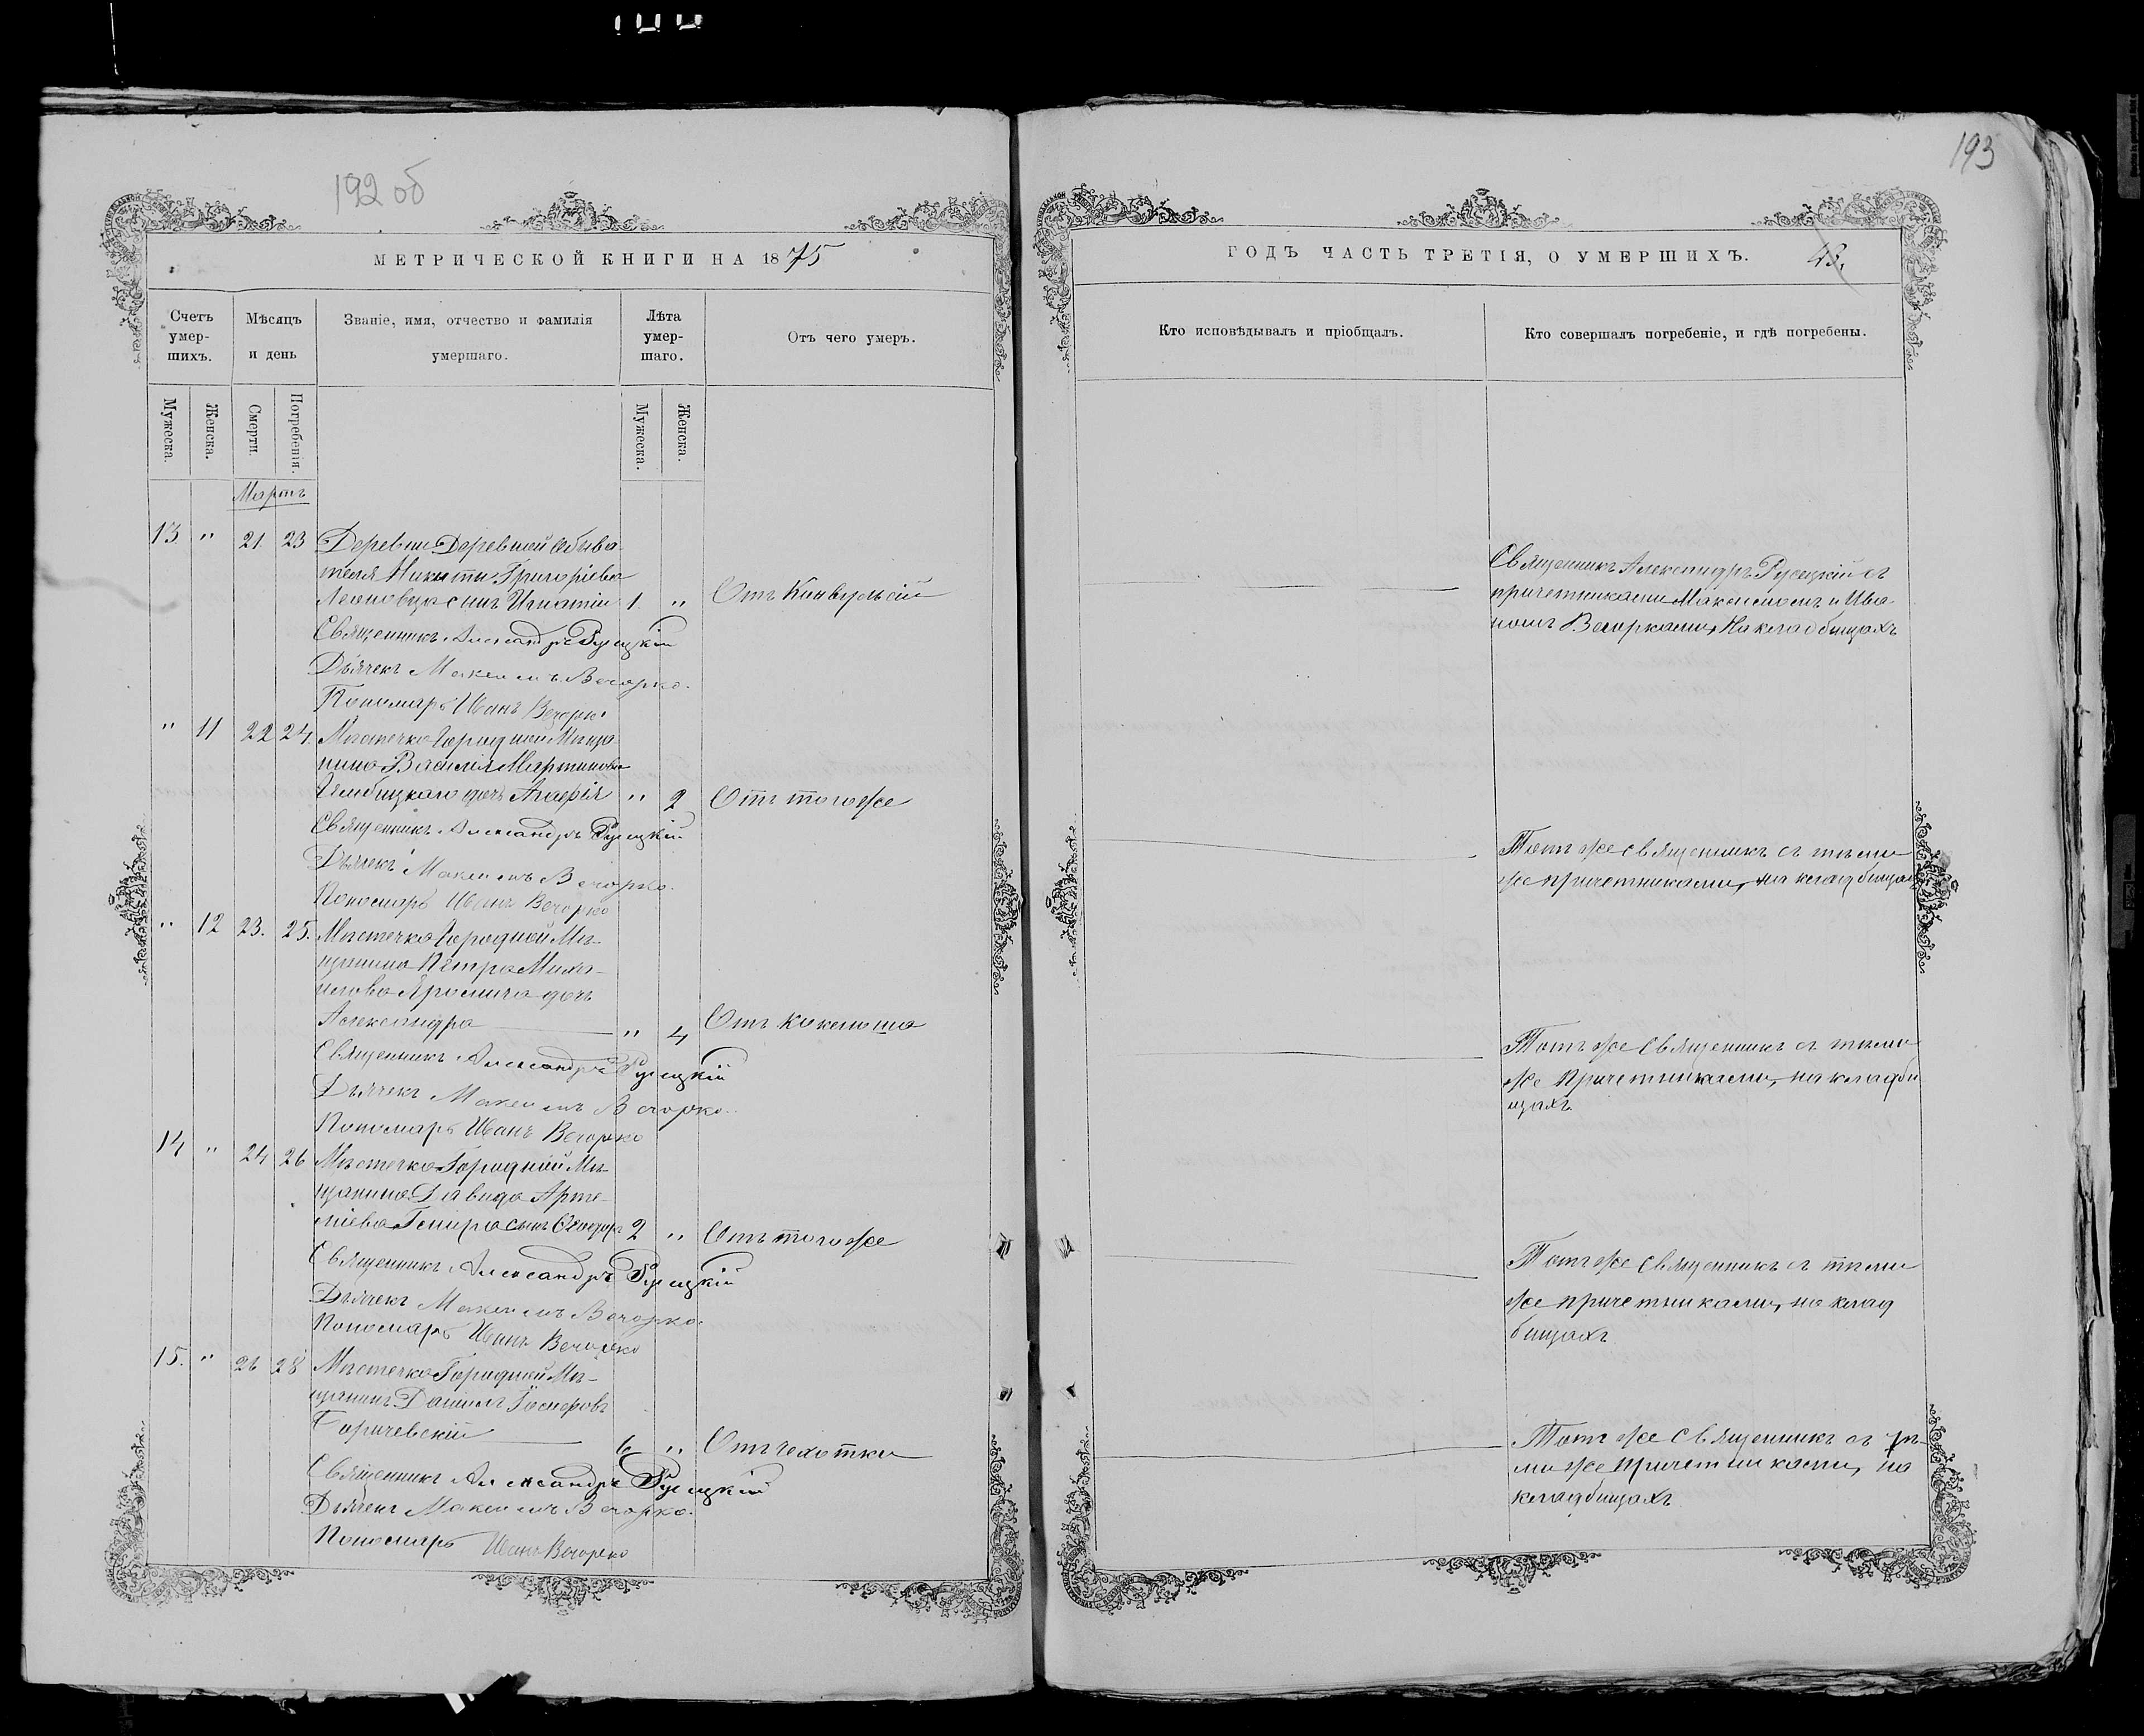 192 об
193
МЕТРИЧЕСКОЙ КНИГИ НА 1875
Счетъ умер-шихъ.
Мѣсяцъ и день
Званіе, имя, отчество и фамилія умершаго.
Лѣта умер-шаго.
Отъ чего умеръ.
Мужеска.
Женска.
Смерти.
Погребенія.
Мужеска.
Женска.
Мартъ
13 " 21 23 Деревни Деревной обыва-
теля Никиты Григоріева
сынъ Игнатій 1 " Отъ Конвульсій
Священникъ Александръ Русецкій
Дьячекъ Максимъ Вечорко.
Пономарь Иванъ Вечорко
" 11 22 24. Мѣстечка Городной Мѣща-
нина Василія Мартинова
дочь Агафія " 2 Отъ того же
Священникъ Александръ Русецкій
Дьячекъ Максимъ Вечорко.
Пономарь Иванъ Вечорко
" 12 23. 25. Мѣстечка Городной Мѣ-
щанина Петра Миха-
илова дочь
Александра " 4 Отъ коклюша
Священникъ Александръ Русецкій
Дьячекъ Максимъ Вечорко.
Пономарь Иванъ Вечорко
14 " 24 26 Мѣстечка Городной Мѣ-
щанина Давида Арте-
міева сынъ Ѳеодоръ 2 " Отъ того же
Священникъ Александръ Русецкій
Дьячекъ Максимъ Вечорко.
Пономарь Иванъ Вечорко
15. " 26 28 Мѣстечка Городной Мѣ-
щанинъ Даніилъ Іосифовъ
Горичевскій 6 " Отъ чахотки
Священникъ Александръ Русецкій
Дьячекъ Максимъ Вечорко.
Пономарь Иванъ Вечорко
ГОДЪ ЧАСТЬ ТРЕТІЯ, О УМЕРШИХЪ.
Кто исповѣдывалъ и пріобщалъ.
Кто совершалъ погребеніе, и гдѣ погребены.
Священникъ Александръ Русецкій съ
причетниками Максимомъ и Ива-
номъ Вечорками, На кладбищахъ
Тотъ же священникъ съ тѣми
же причетниками, на кладбищахъ
Тотъ же Священникъ съ тѣми
же причетниками, на кладби
щахъ
Тотъ же Священникъ съ тѣми
же причетниками, на клад
бищахъ
Тотъ же Священникъ съ тѣ-
ми же причетниками, на
кладбищахъ